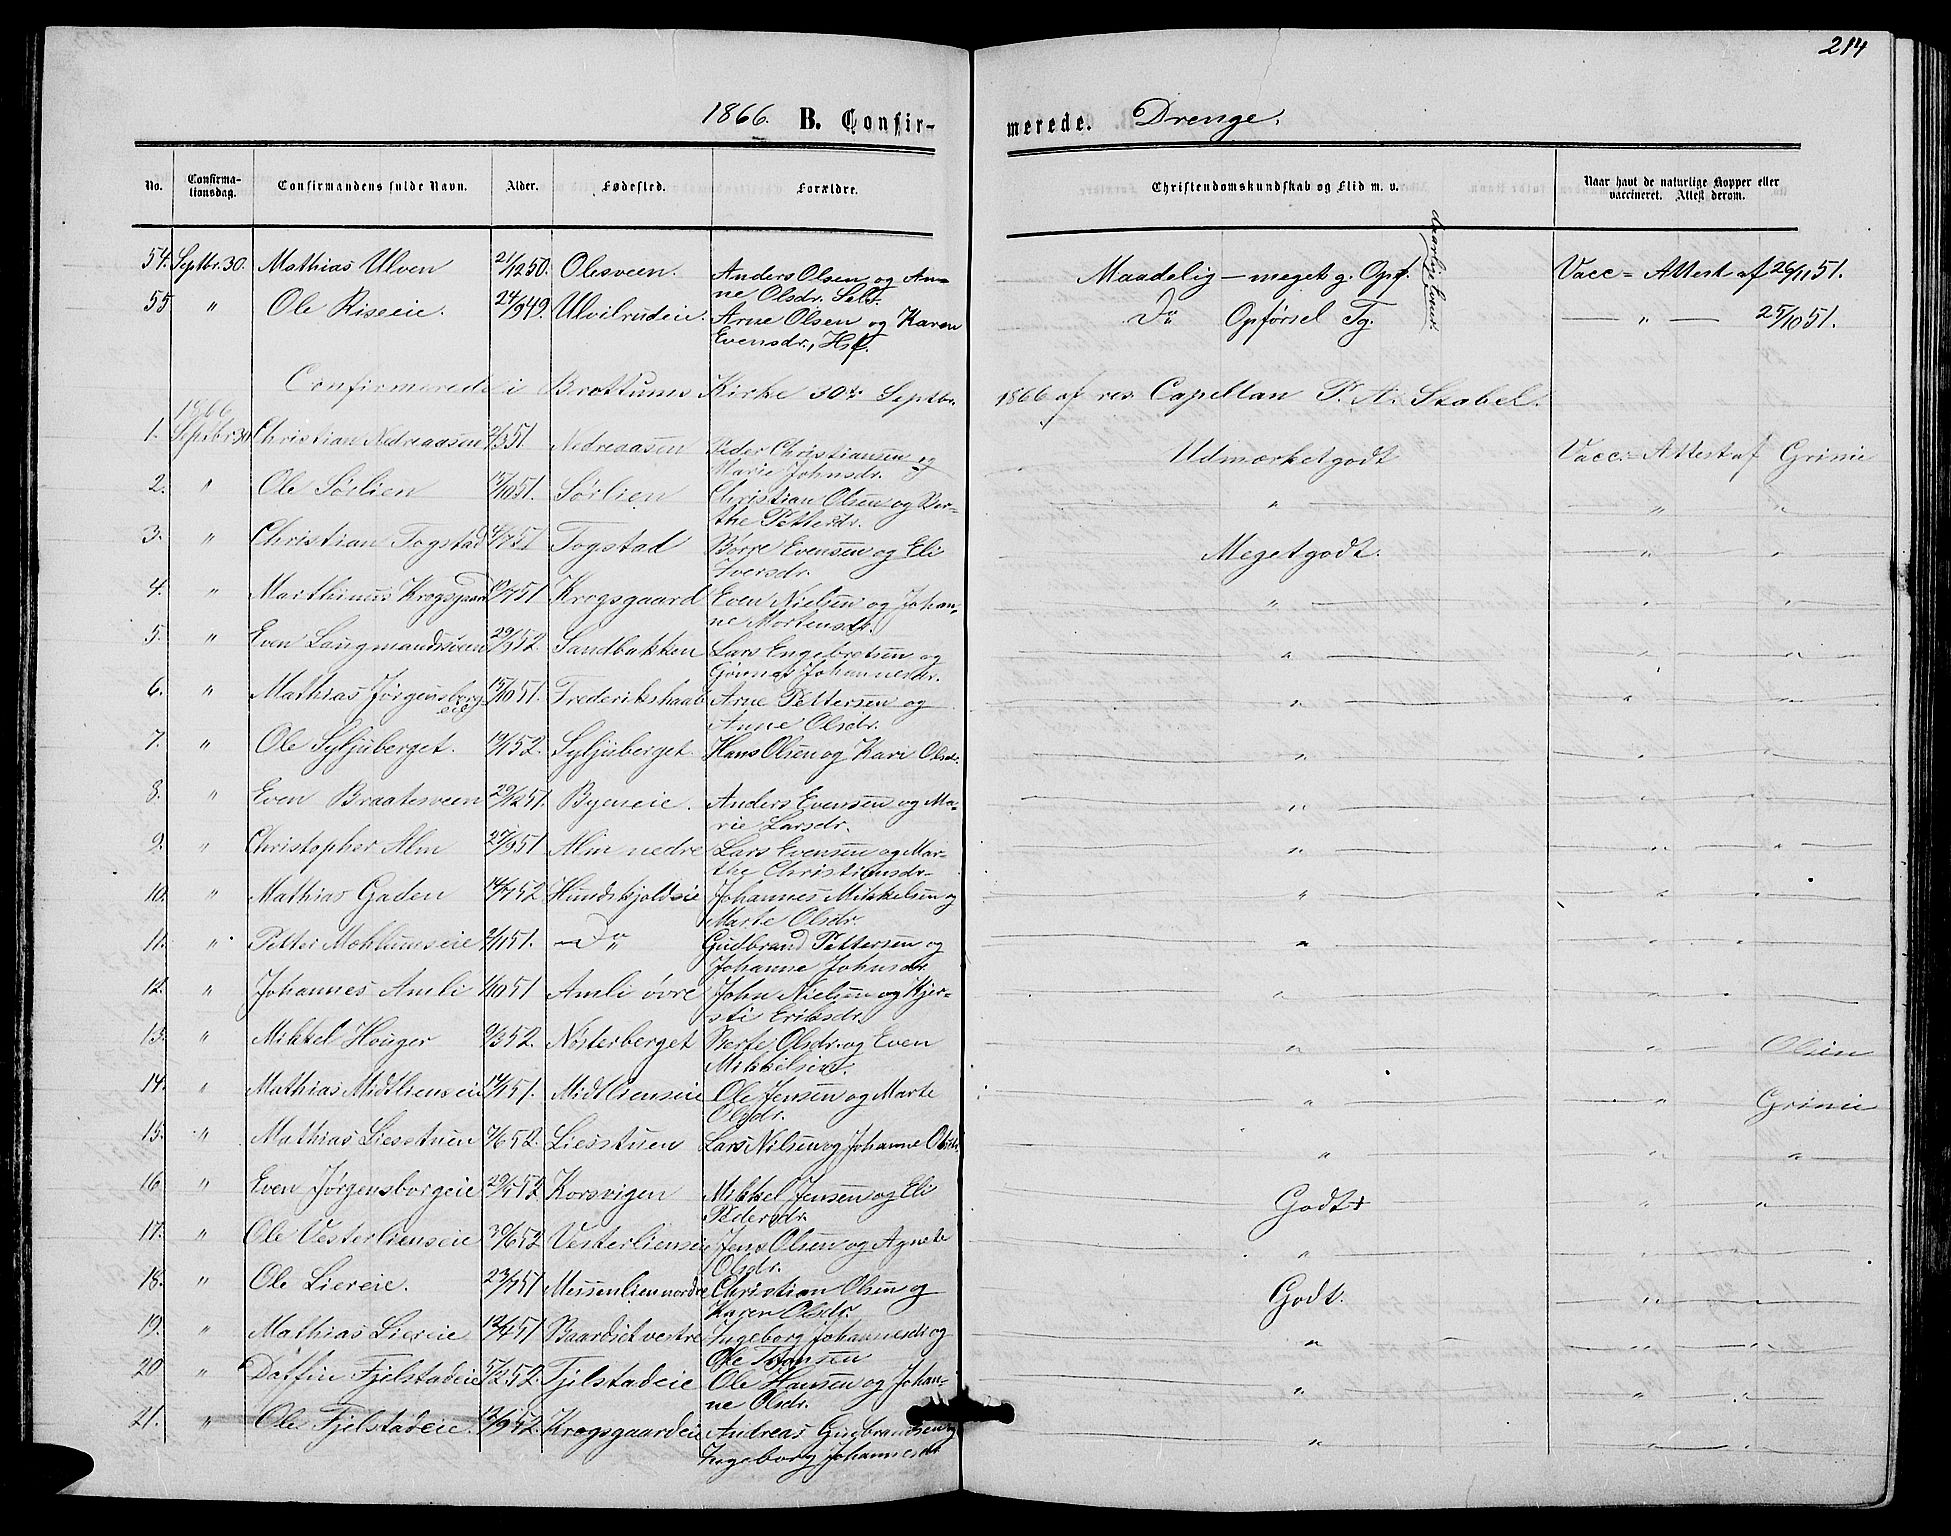 214
1866. B. Confir- merede. Drenge.
No. Confirma-tionsdag. Confirmandens fulde Navn. Alder. Fødested. Forældre. Christendomskundskab og Flid m. v. Naar havt de naturlige Kopper eller vaccineret. Attest derom.
54. Septbr. 30. Mathias Ulven 21/12 50. Olesveen. Anders Olsen og An- Maadelig — meget g. Opf. Vacc = Attest af 26/1 51.
ne Olsdr. Selv.
55 " Ole Riseeie. 24/9 49. Ulvilrudeie. Arne Olsen og Karen Do Opførsel Tg. — " — 25/10 51.
Evensdr., Hf.
Confirmerede i Brøttums Kirke 30te Septbr. 1866 af res. Capellan P. A. Stabel.
1866
1. Septbr 30 Christian Nedreaasen /3 51 Nedreaasen Peder Christiansen og Udmærket godt Vacc. Attest af Grinie
Marie Johnsdr.
2. " Ole Sørlien /10 51. Sørlien Christian Olsen og Ber- " " "
the Pettersdr.
3. " Christian Togstad /7 51 Togstad Børre Evensen og Eli Meget godt. " "
Iversdr.
4. " Marthinus Krogsgaard /7 51 Krogsgaard Even Nielsen og Johan- " " "
ne Mortensdr.
5. " Even Langmandsveen 29/1 52. Sandbakken Lars Engebretsen og " " "
Johannesdr.
6. " Mathias Jørgensborg- 15/10 51. Frederikshaab Arne Pettersen og " " "
eie Anne Olsdr.
7. " Ole Syljuberget. /1 52. Syljuberget Hans Olsen og Kari Olsdr. " " "
8. " Even Braatesveen 29/12 51. Byeneie. Anders Evensen og Ma- " " "
rie Larsdr.
9. " Christopher Alm 27/9 51 Alm nedre Lars Evensen og Mar- " " "
the Christiansdr.
10. " Mathias Gaden 14/4 52 Hundskjoldeie Johannes Mikkelsen og " " "
Marte Olsdr.
11. " Petter Mohlumseie /11 51. — Do Gudbrand Pettersen og " " "
Johanne Johnsdr
12. " Johannes Amli /10 51 Amli øvre John Nielsen og Kjer- " " "
sti Eriksdr.
13. " Mikkel Houger /3 52. Nosterberget Berte Olsdr. og Even " " Olsen
Mikkelsen.
14. " Mathias Midtlienseie /1 51. Midtlienseie Ole Jensen og Marte " " Grinie
Olsdr.
15. " Mathias Liesstuen 7/6 52. Liesstuen Lars Nilsen og Johanne Olsdr. " " "
16. " Even Jørgensborgeie 20/ 52 Korsvigen Mikkel Jensen og Eli Godt+ " "
Pedersdr.
17. " Ole Vesterlienseie 30/6 52 Vesterlienseie Jens Olsen og Agnete " " "
Olsdr.
18. " Ole Liereie. 23/ 51 Messenlien nordre Christian Olsen og Godt. " "
Karen Olsdr.
19. " Mathias Liereie 12/ 51 Baardset vestre Ingeborg Johannesdr og " " "
Ole Tønsen
20 " Daffin Fjelstadeie 5/2 52. Fjelstadeie Ole Hansen og Johan- " " "
ne Olsdr.
21. " Ole Fjelstadeie. 12/9 52. Krogsgaardeie Andreas Gudbrandsen og " " "
Ingeborg Johannesdr